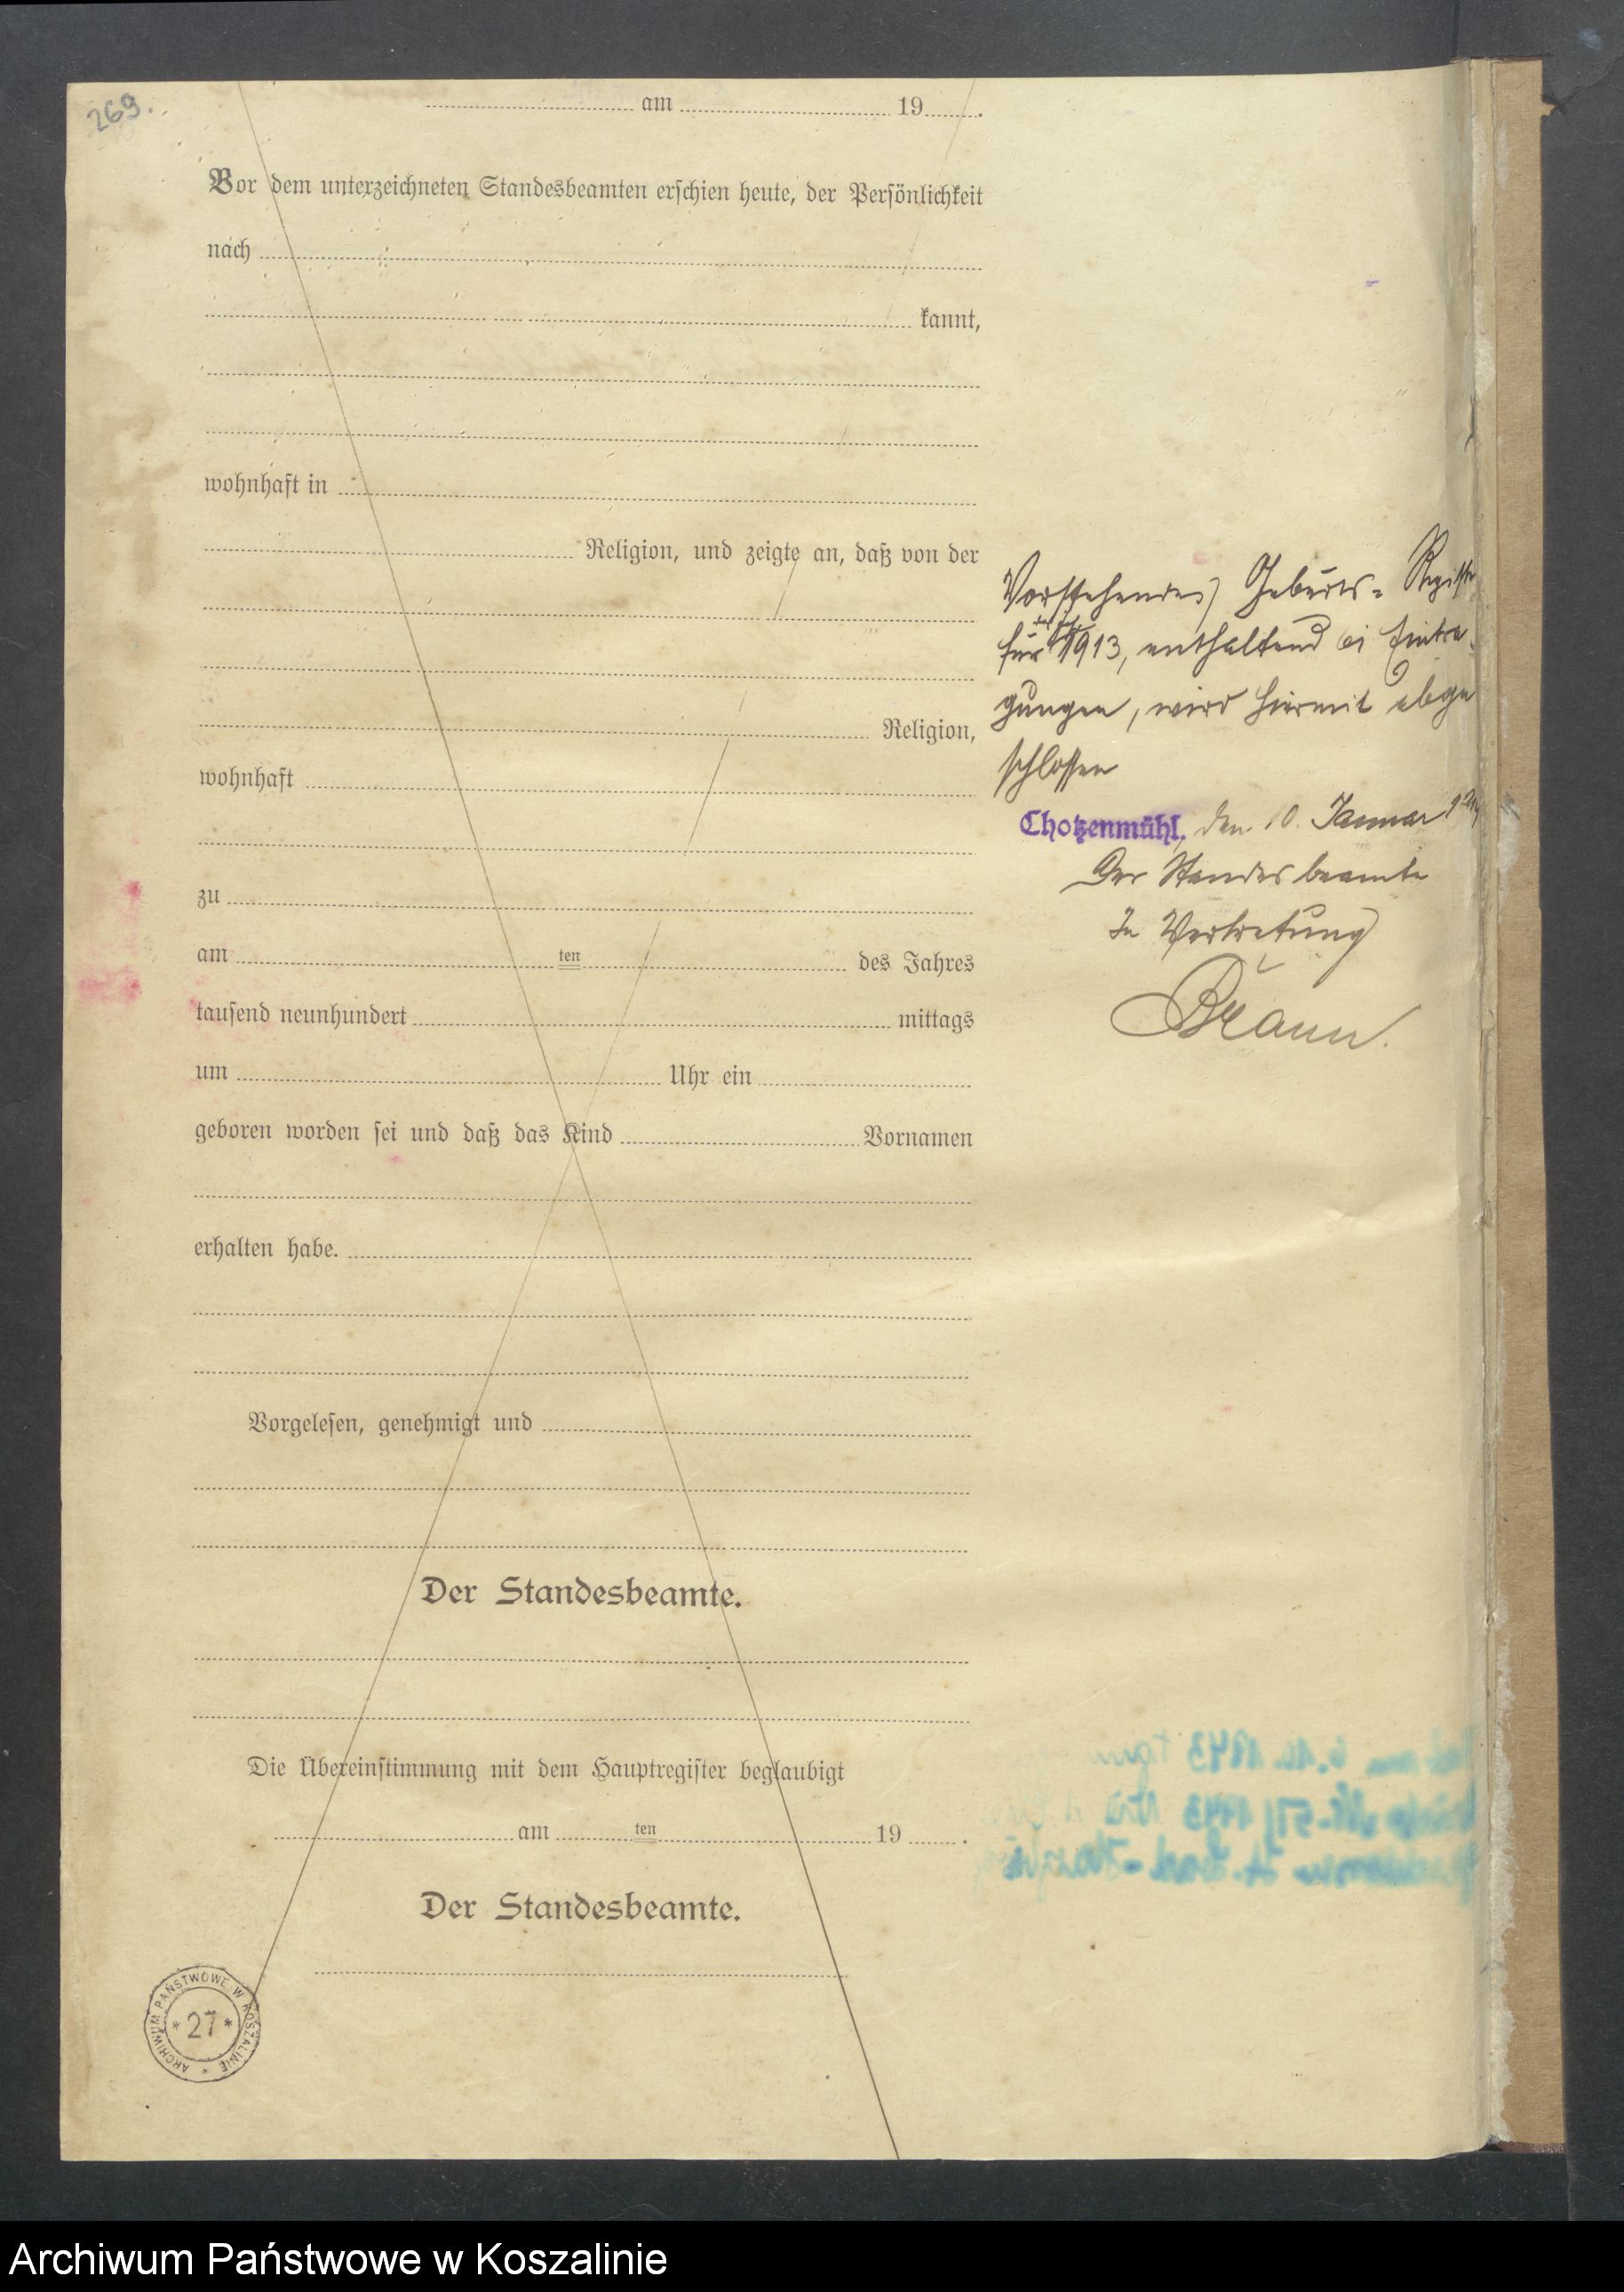 269.
am 19 .
Vor dem unterzeichneten Standesbeamten erschien heute, der Persönlichkeit
nach
kannt,
wohnhaft in
Religion, und zeigte an, daß von der
Religion,
wohnhaft
zu
am ten des Jahres
tausend neunhundert mittags
um Uhr ein
geboren worden sei und daß das Kind Vornamen
erhalten habe.
Vorgelesen, genehmigt und
Der Standesbeamte.
Die Übereinstimmung mit dem Hauptregister beglaubigt
am ten 19 .
Der Standesbeamte.
Vorstehendes Geburts-Register
für 1913, enthaltend Eintra-
gungen, wird hiermit abge
schlossen
Chotzenmühl, den 10. Januar
Der Standesbeamte
In Vertretung
Braun.
ARCHIWUM PAŃSTWOWE W KOSZALINIE
* 27 *
Archiwum Państwowe w Koszalinie